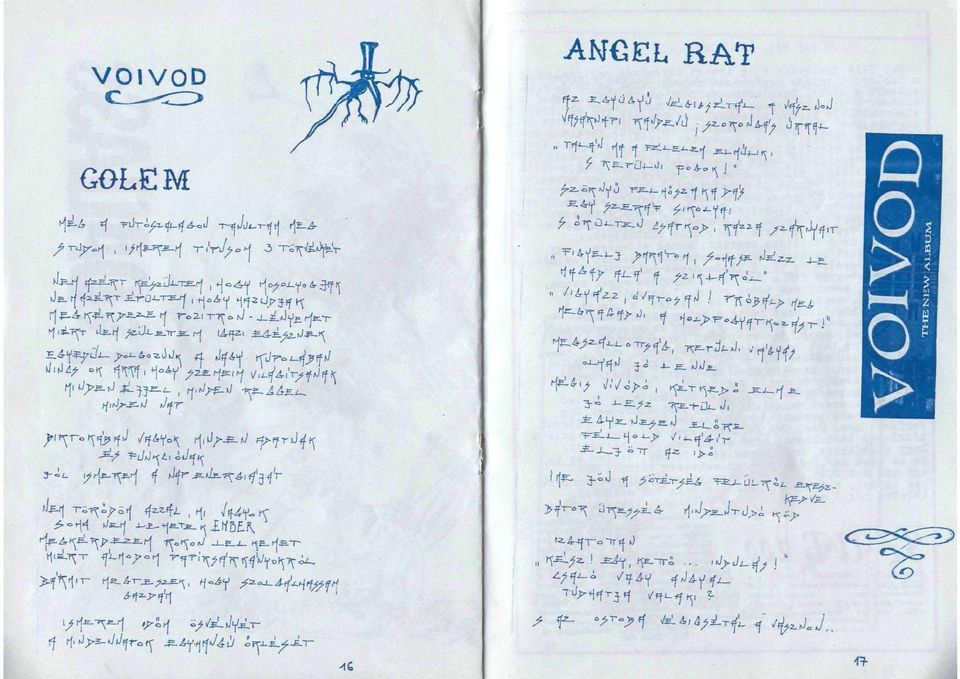 VOIVOD
GOLEM
MÉG A FUTÓSZALAGON TANULTAM MEG
S TUDOM, ISMEREM TÍPUSOM 3 TÖRVÉNYÉT
NEM AZÉRT KÉSZÜLTEM, HOGY MOSOLYOGJAK
NEM AZÉRT ÉPÜLTEM, HOGY HAZUDJAK
MEGKÉRDEZEM POZITRON-LÉNYEMET
MIÉRT NEM SZÜLETEM IGAZI EGÉSZNEK
EGYEDÜL DOLGOZUNK A NAGY KUPOLÁBAN
NINCS OK ARRA, HOGY SZEMEIM VILÁGÍTSANAK
MINDEN ÉJJEL, MINDEN REGGEL
MINDEN NAP
BIRTOKÁBAN VAGYOK MINDEN ADATNAK
ÉS FUNKCIÓNAK
JÓL ISMEREM A NAP ENERGIÁJÁT
NEM TÖRŐDÖM AZZAL, MI VAGYOK
SOHA NEM LEHETEK EMBER
MEGKÉRDEZEM ROKON LELKEMET
MIÉRT ÁLMODOM PAPÍRSÁRKÁNYOKRÓL
BÁRMIT MEGTESZEK, HOGY SZOLGÁLHASSAM
GAZDÁM
ISMEREM IDŐM ÖSVÉNYÉT
A MINDENNAPOK EGYHANGÚ ŐRLÉSÉT
16
ANGEL RAT
AZ EGYÜGYŰ VÉGIGSÉTÁL A VÁSZNON
VASÁRNAPI RANDEVÚ; SZORONGÁS ÚRRAL
„TALÁN MA A FÉLELEM ELMÚLIK,
S REPÜLNI FOGOK!"
SZÖRNYŰ FELHŐSZAKADÁS
EGY SZERÁF SIKOLYAI
S ŐRÜLTEN CSAPKOD, RÁZZA SZÁRNYAIT
„FIGYELJ BARÁTOM, SOHASE NÉZZ LE
MAGAD ALÁ A SZIKLÁRÓL"
„VIGYÁZZ, ÓVATOSAN! PRÓBÁLD MEG
MEGRAGADNI A HOLDFOGYATKOZÁST!"
MEGSZÁLLOTTSÁG, REPÜLNI VÁGYÁS
OLYAN JÓ LENNE
MÉGIS VÍVÓDÓ, KÉTKEDŐ ELME
JÓ LESZ REPÜLNI
EGYENESEN ELŐRE
FÉLHOLD VILÁGÍT
ELJÖTT AZ IDŐ
ÍME JÖN A SÖTÉTSÉG FELÜLRŐL ERESZ-
KEDVE
BÁTOR ÜRESSÉG MINDENTUDÓ KÖD
IZGATOTTAN
„KÉSZ! EGY, KETTŐ ... INDULÁS!"
CSALÓ VAGY ANGYAL
TUDHATJA VALAKI?
S AZ OSTOBA VÉGIGSÉTÁL A VÁSZNON...
17
VOIVOD
THE NEW ALBUM